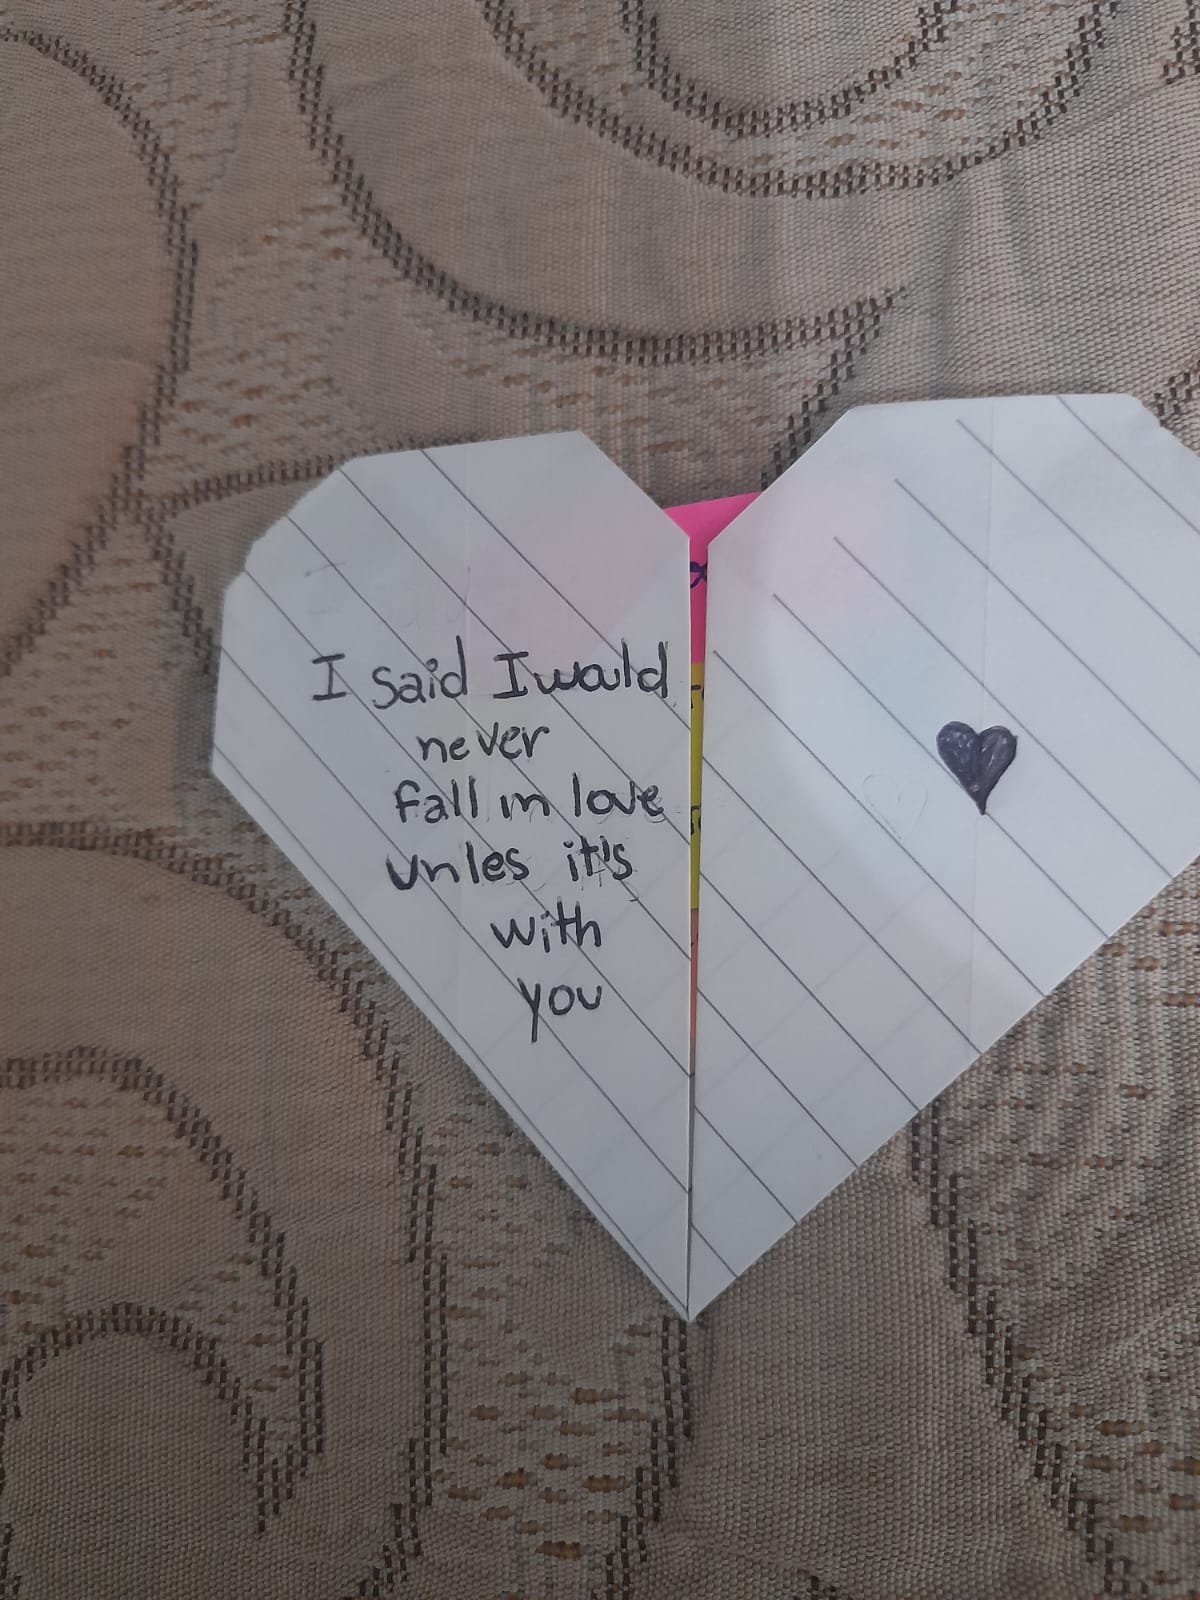 I said I would
never
fall in love
Unles it's
with
you